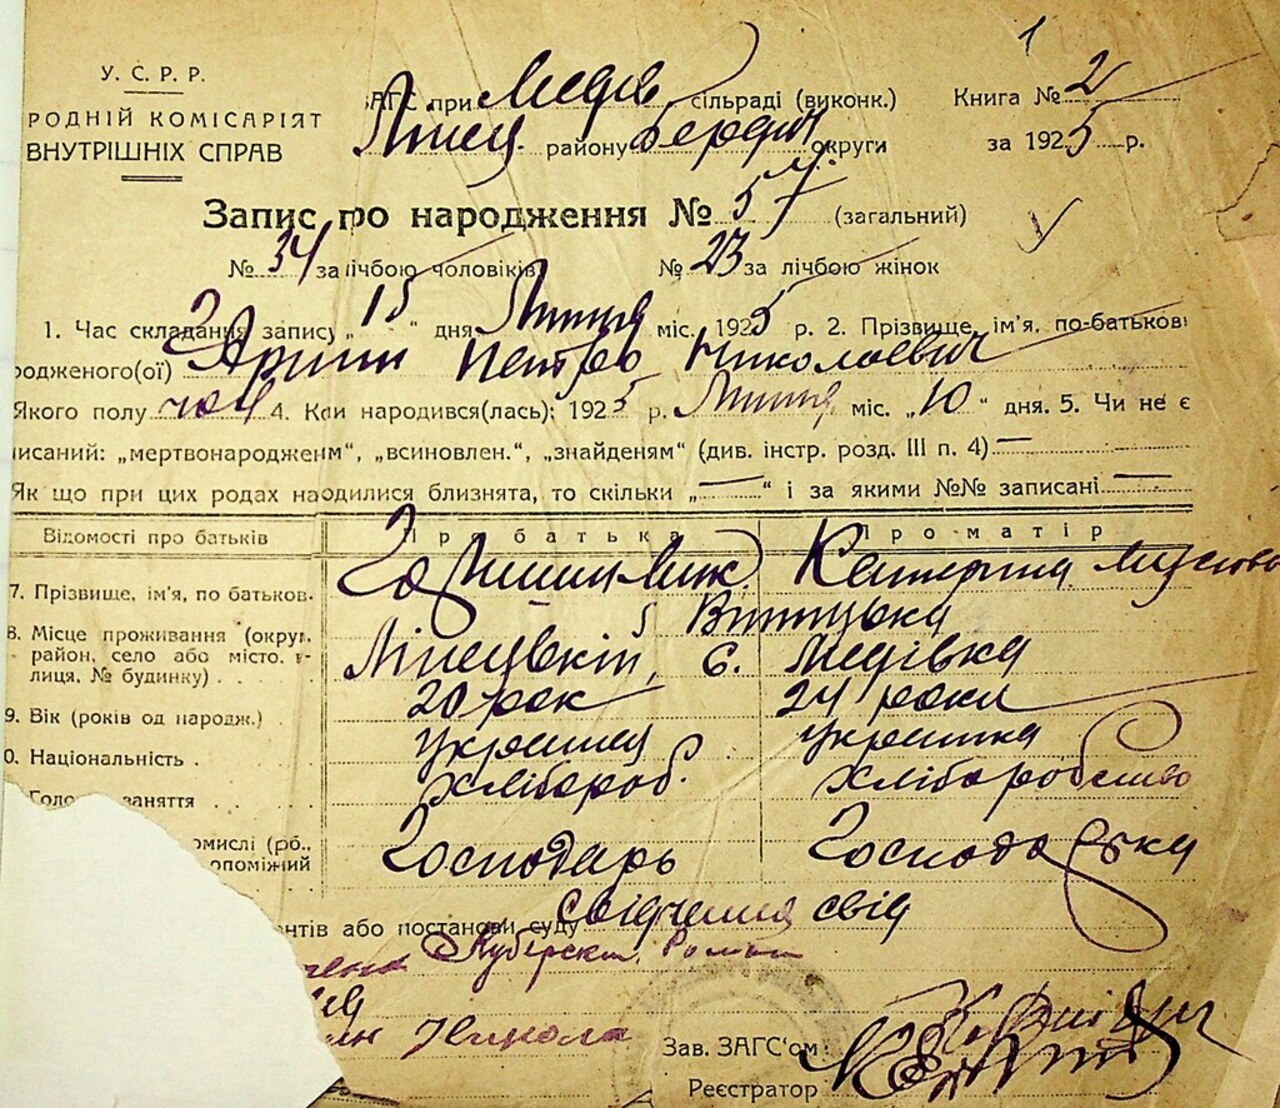 У. С. Р. Р.
РОДНІЙ КОМІСАРІЯТ
ВНУТРІШНІХ СПРАВ
ЗАГС при Медів сільраді (виконк.)
Липец. району Бердич округи
Книга № 2
за 1925 р.
1
Запис про народження № 57 (загальний)
№ 34 за лічбою чоловіків № 23 за лічбою жінок
1. Час складання запису „15“ дня Липня міс. 1925 р. 2. Прізвище, ім'я, по-батькові
родженого(ої) Петро Николаевич
Якого полу чол 4. Коли народився(лась): 1925 р. Липня міс. „10“ дня. 5. Чи не є
писаний: „мертвонародженим“, „всиновлен.“, „знайденям“ (див. інстр. розд. III п. 4) —
Як що при цих родах находилися близнята, то скільки „—“ і за якими №№ записані —
Відомості про батьків Про батька Про матір
7. Прізвище, ім'я, по батьков. Катерина
8. Місце проживання (округ, район, село або місто, лиця, № будинку) Вінницька
Липецвкій, с. Медівка
9. Вік (років од народж.) 20 рок 24 роки
0. Національність українец українка
Голо заняття хлібороб. хліборобство
омислі (рб.,
опоміжний Господарь Господарька
нтів або постанови суду свідчення свід
Роман
Никола
Зав. ЗАГС'ом
Реєстратор